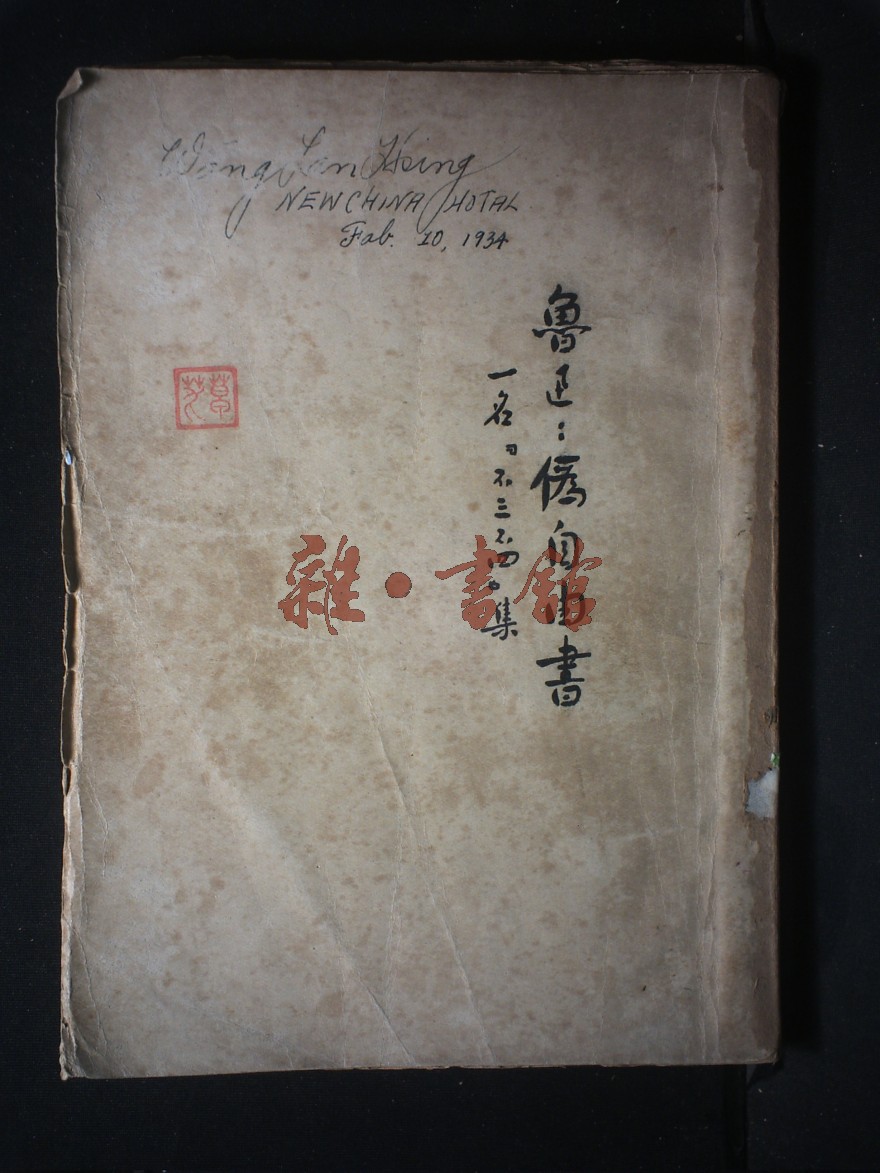 Wong Lan Hsing
NEW CHINA HOTAL
Fab. 10, 1934
魯迅：僞自由書
一名『不三不四』集
雜·書館